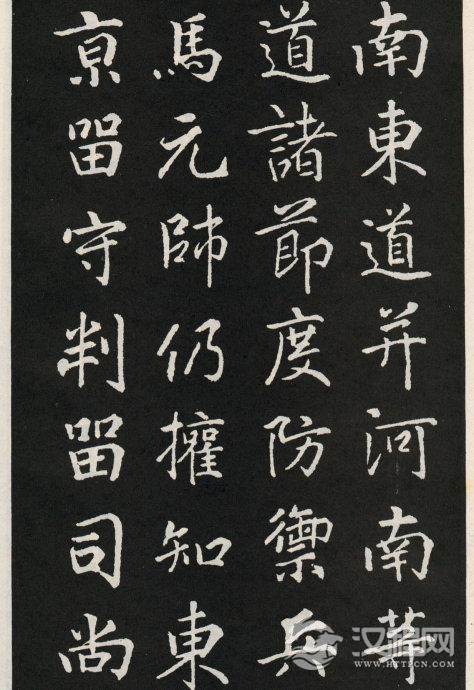 南東道并河南等
道諸節度防禦兵
馬元帥仍權知東
亰留守判留司尚
汉程网
WWW.HTTPCN.COM